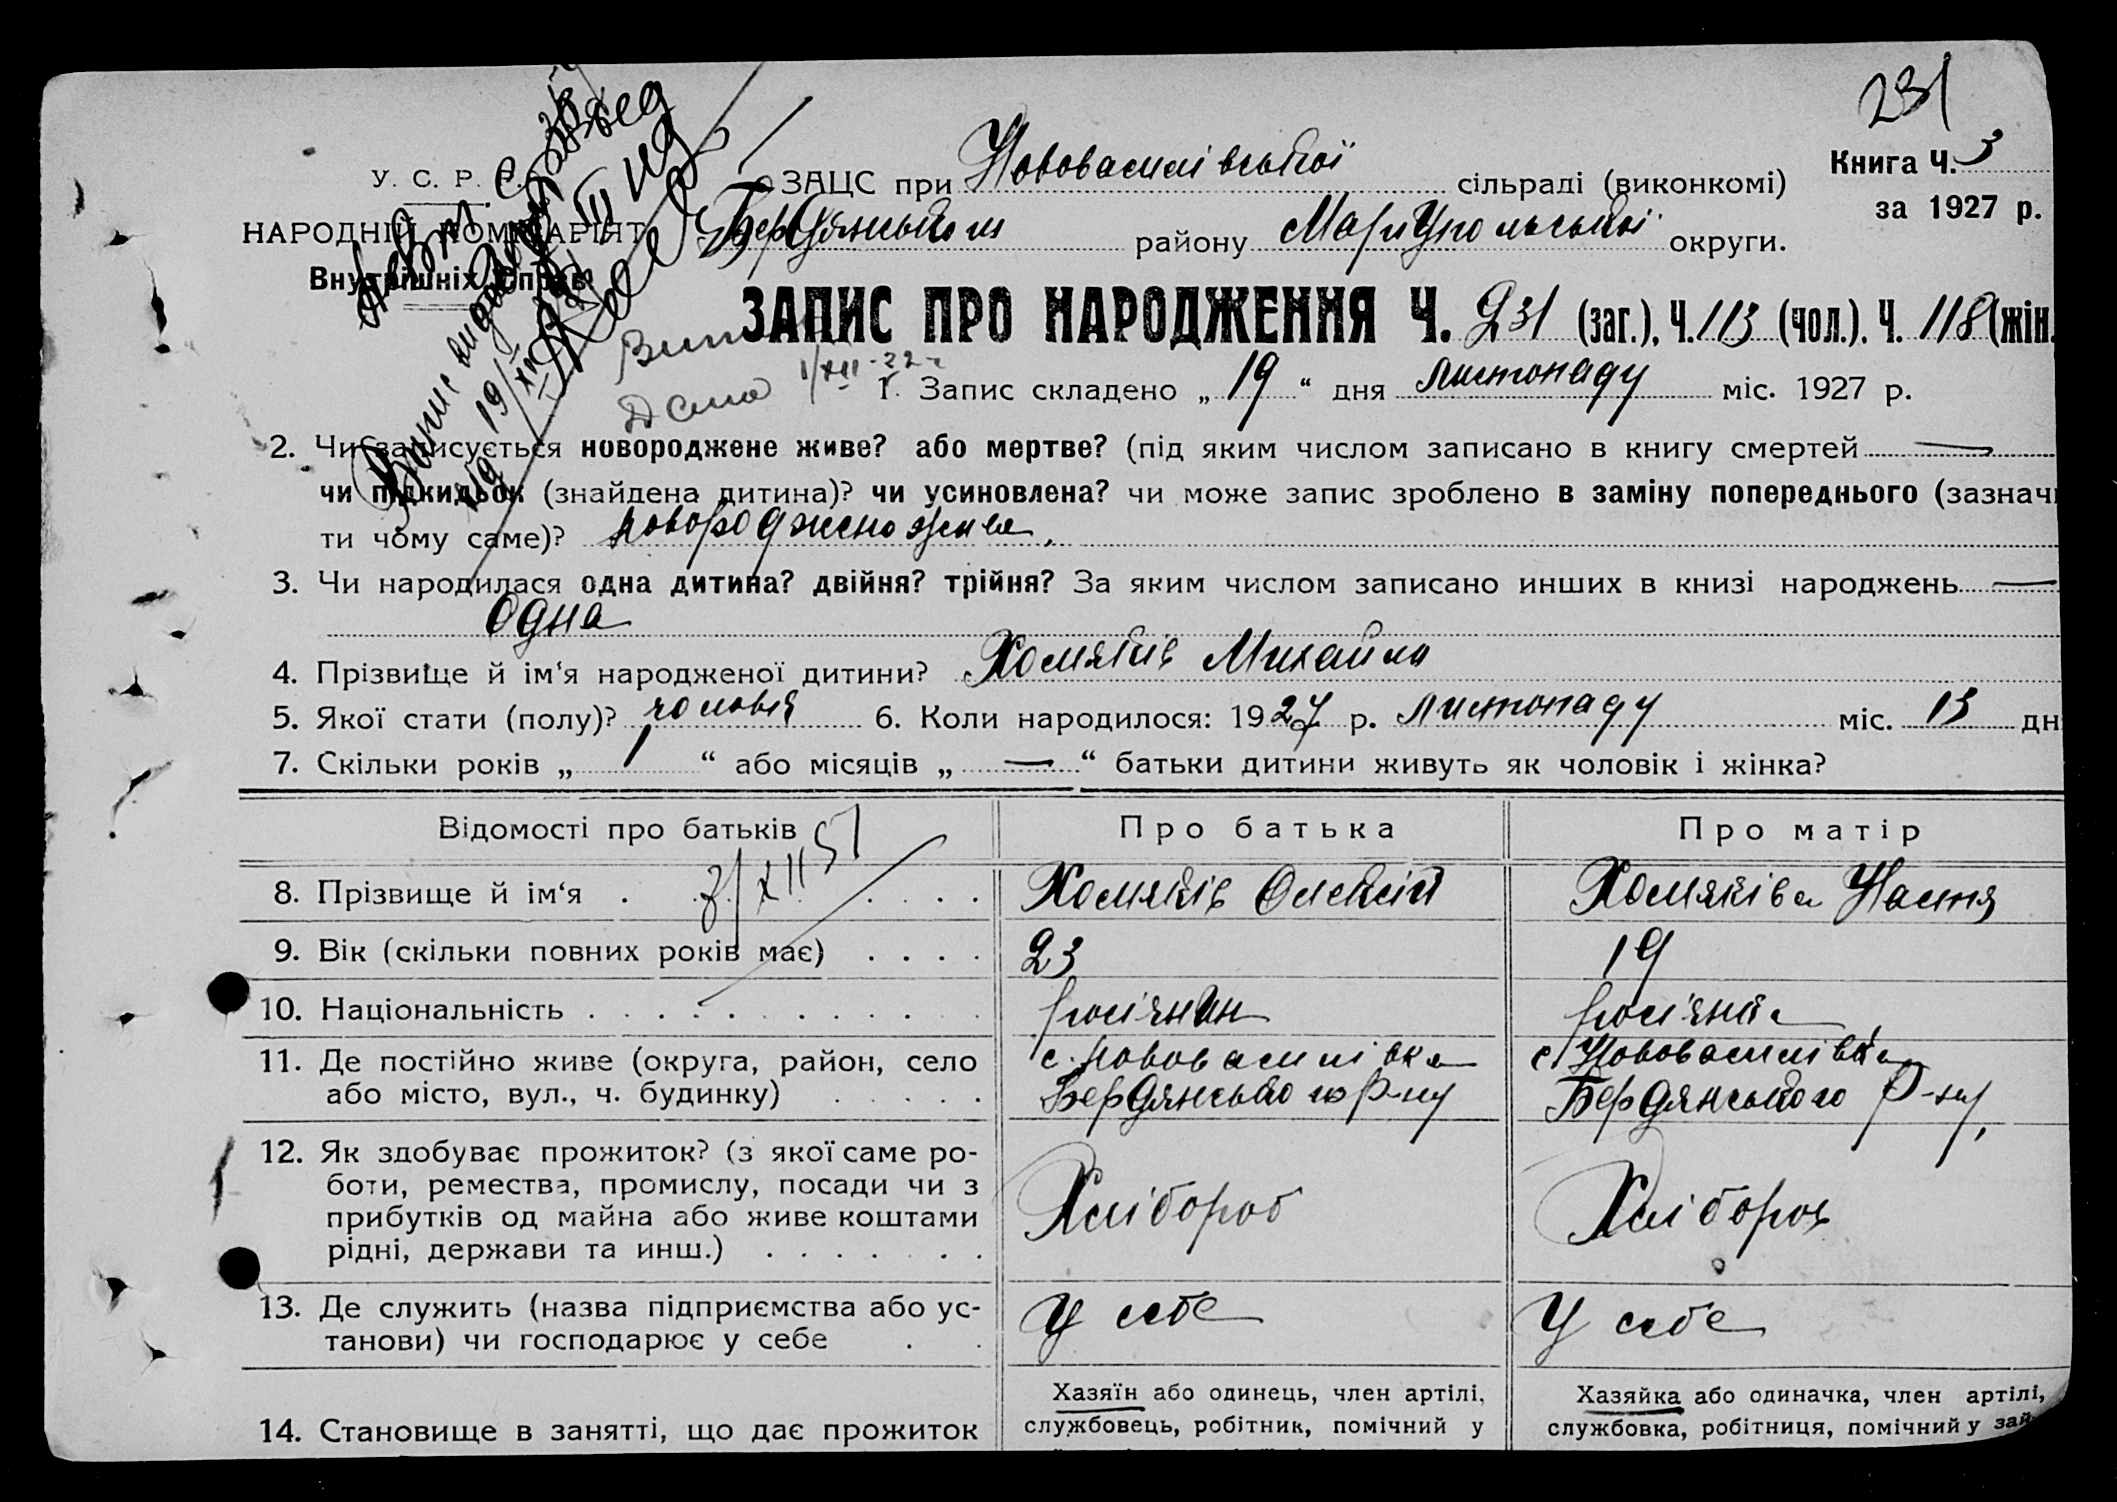 231
Книга Ч. 3
за 1927 р.
У. С. Р. Р.
НАРОДНІЙ КОМІСАРІЯТ
Внутрішніх Справ
ЗАЦС при Нововасилівської сільраді (виконкомі)
Бердянським району Маріупольської округи.
ЗАПИС ПРО НАРОДЖЕННЯ Ч. 231 (заг.), Ч. 113 (чол.), Ч. 118 (жін.
1. Запис складено „ 19 “ дня листопаду міс. 1927 р.
2. Чи записується новороджене живе? або мертве? (під яким числом записано в книгу смертей —
чи підкидьок (знайдена дитина)? чи усиновлена? чи може запис зроблено в заміну попереднього (зазначи
ти чому саме)? новороджено живе.
3. Чи народилася одна дитина? двійня? трійня? За яким числом записано инших в книзі народжень —
одна
4. Прізвище й ім'я народженої дитини? Хомяків Михайло
5. Якої стати (полу)? чоловік 6. Коли народилося: 1927 р. листопаду міс. 13 дн
7. Скільки років „ 1 “ або місяців „ — “ батьки дитини живуть як чоловік і жінка?
Відомості про батьків Про батька Про матір
8. Прізвище й ім'я Хомяків Олексій Хомяківа Настя
9. Вік (скільки повних років має) 23 19
10. Національність росіянин росіянка
11. Де постійно живе (округа, район, село с. Нововасилівка с. Нововасилівка
або місто, вул., ч. будинку) Бердянського р-ну Бердянського р-ну,
12. Як здобуває прожиток? (з якої саме ро-
боти, ремества, промислу, посади чи з
прибутків од майна або живе коштами Хлібороб Хлібороб
рідні, держави та инш.)
13. Де служить (назва підприємства або ус- У себе У себе
танови) чи господарює у себе
Хазяїн або одинець, член артілі, Хазяйка або одиначка, член артілі,
14. Становище в занятті, що дає прожиток службовець, робітник, помічний у службовка, робітниця, помічний у зай